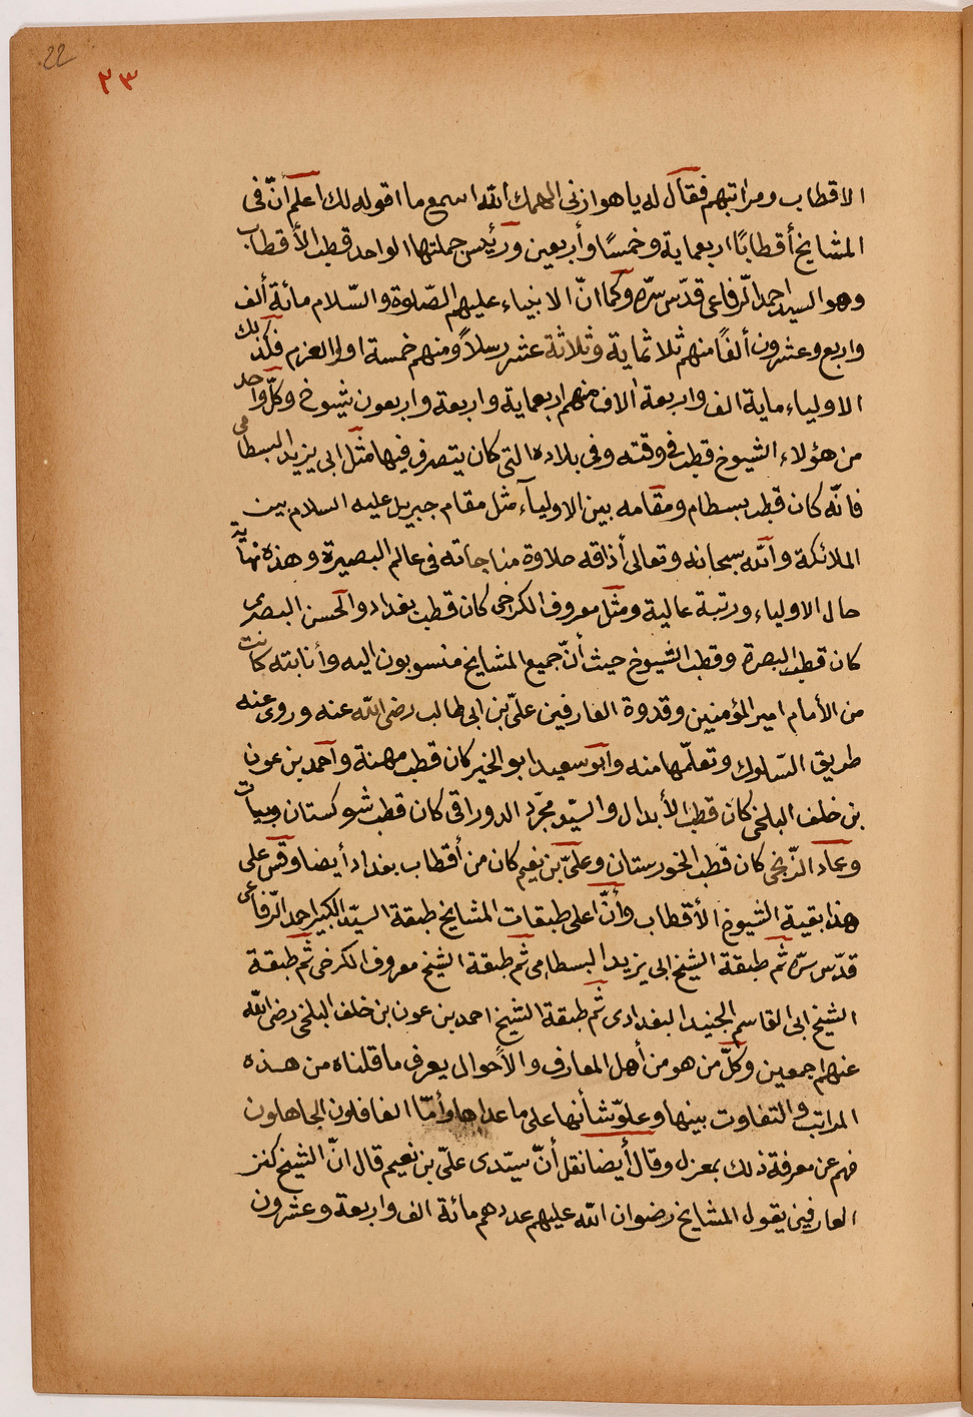 22
٢٣
الاقطاب ومراتبهم فقال له يا هوازنى الهمك الله اسمع ما اقوله لك اعلم أنّ فى
المشايخ أقطابًا اربعماية وخمسًا وأربعين ورئيس جملتها الواحد قطب الأقطاب
وهو السيد احمد الرّفاعى قدّس سرّه وكما انّ الانبياء عليهم الصّلوة والسّلام مائة ألف
واربع وعشرون ألفًا منهم ثلاثماية وثلاثة عشر رسلاً ومنهم خمسة اولوا العزم فكذلك
الاولياء ماية الف واربعة الاف منهم اربعماية واربعة واربعون شيوخ وكلّ واحد
من هؤلاء الشيوخ قطب فى وقته وفى بلاده التى كان يتصرف فيها مثل ابى يزيد البسطامى
فانّه كان قطب بسطام ومقامه بين الاولياء مثل مقام جبريل عليه السلام بين
الملائكة والله سبحانه وتعالى أذاقه حلاوة مناجاته فى عالم البصيرة وهذه نهاية
حال الاولياء ورتبة عالية ومثل معروف الكرخى كان قطب بغداد والحسن البصرى
كان قطب البصرة وقطب الشيوخ حيث أنّ جميع المشايخ منسوبون اليه وأنابته كانت
من الأمام امير المؤمنين وقدوة العارفين علىّ بن ابى طالب رضى الله عنه وروى عنه
طريق السّلوك وتعلّمها منه وابو سعيد ابو الخير كان قطب مهنة وآحمد بن عون
بن خلف البلخى كان قطب الأبدال والسّيو مجرّد الدوراقى كان قطب شوكستان وبيات
وعماد الزّنجى كان قطب الخورستان وعلىّ بن نعيم كان من أقطاب بغداد أيضا وقس على
هذا بقية الشيوخ الأقطاب وأنّ اعلى طبقات المشايخ طبقة السيّد الكبير احمد الرّفاعى
قدّس سرّه ثم طبقة الشيخ ابى يزيد البسطامى ثم طبقة الشيخ معروف الكرخى ثم طبقة
الشيخ ابى القاسم الجنيد البغدادى ثم طبقة الشيخ احمد بن عون ابن خلف البلخى رضى الله
عنهم اجمعين وكلّ من هو من أهل المعارف والأحوال يعرف ما قلناه من هذه
المراتب والتفاوت بينها وعلوّ شأنها على ما عداها وأمّا الغافلون الجاهلون
فهم عن معرفة ذلك بمعزل وقال أيضا نقل أنّ سيّدى علىّ بن نعيم قال انّ الشيخ كنز
العارفين يقول المشايخ رضوان الله عليهم عددهم مائة الف واربعة وعشرون